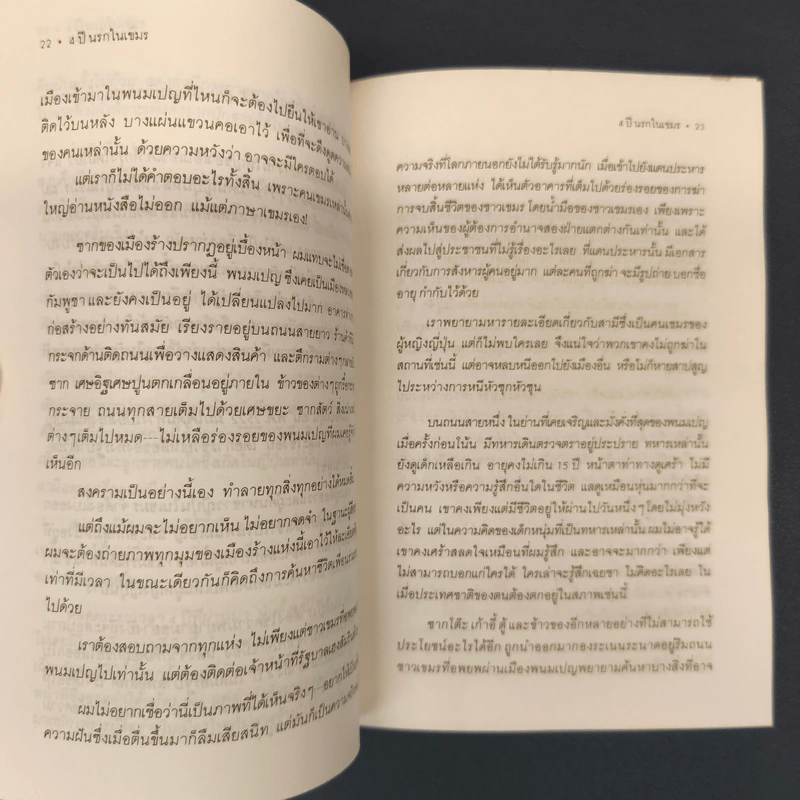 22 • 4 ปี นรกในเขมร
เมืองเข้ามาในพนมเปญที่ไหนก็จะต้องไปยื่นให้เขาอ่าน
ติดไว้บนหลัง บางแผ่นแขวนคอเอาไว้ เพื่อที่จะดึงดูดความ
ของคนเหล่านั้น ด้วยความหวังว่า อาจจะมีใครตอบได้
แต่เราก็ไม่ได้คำตอบอะไรทั้งสิ้น เพราะคนเขมรเหล่านั้น
ใหญ่อ่านหนังสือไม่ออก แม้แต่ภาษาเขมรเอง!
ซากของเมืองร้างปรากฏอยู่เบื้องหน้า ผมแทบจะไม่เชื่อ
ตัวเองว่าจะเป็นไปได้ถึงเพียงนี้ พนมเปญ ซึ่งเคยเป็นเมือง
กัมพูชา และยังคงเป็นอยู่ ได้เปลี่ยนแปลงไปมาก อาคาร
ก่อสร้างอย่างทันสมัย เรียงรายอยู่บนถนนสายยาว ร้านค้า
กระจกด้านติดถนนเพื่อวางแสดงสินค้า และตึกรามต่างๆ
ซาก เศษอิฐเศษปูนตกเกลื่อนอยู่ภายใน ข้าวของต่างๆถูกรื้อ
กระจาย ถนนทุกสายเต็มไปด้วยเศษขยะ ซากสัตว์
ต่างๆเต็มไปหมด---ไม่เหลือร่องรอยของพนมเปญที่ผมเคยรู้จัก
เห็นอีก
สงครามเป็นอย่างนี้เอง ทำลายทุกสิ่งทุกอย่างได้หมดสิ้น
แต่ถึงแม้ผมจะไม่อยากเห็น ไม่อยากจดจำ ในฐานะ
ผมจะต้องถ่ายภาพทุกมุมของเมืองร้างแห่งนี้เอาไว้ให้ละเอียด
เท่าที่มีเวลา ในขณะเดียวกันก็คิดถึงการค้นหาชีวิตเพื่อน
ไปด้วย
เราต้องสอบถามจากทุกแห่ง ไม่เพียงแต่ชาวเขมรที่อพยพ
พนมเปญไปเท่านั้น แต่ต้องติดต่อเจ้าหน้าที่รัฐบาลเฮงสัมริน
ผมไม่อยากเชื่อว่านี่เป็นภาพที่ได้เห็นจริงๆ อยากให้เป็น
ความฝันซึ่งเมื่อตื่นขึ้นมาก็ลืมเสียสนิท แต่มันก็เป็นความ
4 ปี นรกในเขมร • 23
ความจริงที่โลกภายนอกยังไม่ได้รับรู้มากนัก เมื่อเข้าไปยังแดนประหาร
หลายต่อหลายแห่ง ได้เห็นตัวอาคารที่เต็มไปด้วยร่องรอยของการฆ่า
การจบสิ้นชีวิตของชาวเขมร โดยน้ำมือของชาวเขมรเอง เพียงเพราะ
ความเห็นของผู้ต้องการอำนาจสองฝ่ายแตกต่างกันเท่านั้น และได้
ส่งผลไปสู่ประชาชนที่ไม่รู้เรื่องอะไรเลย ที่แดนประหารนั้น มีเอกสาร
เกี่ยวกับการสังหารผู้คนอยู่มาก แต่ละคนที่ถูกฆ่า จะมีรูปถ่าย บอกชื่อ
อายุ กำกับไว้ด้วย
เราพยายามหารายละเอียดเกี่ยวกับสามีซึ่งเป็นคนเขมรของ
ผู้หญิงญี่ปุ่น แต่ก็ไม่พบใครเลย จึงแน่ใจว่าพวกเขาคงไม่ถูกฆ่าใน
สถานที่เช่นนี้ แต่อาจหลบหนีออกไปยังเมืองอื่น หรือไม่ก็หายสาปสูญ
ไประหว่างการหนีหัวซุกหัวซุน
บนถนนสายหนึ่ง ในย่านที่เคยเจริญและมั่งคั่งที่สุดของพนมเปญ
เมื่อครั้งก่อนโน้น มีทหารเดินตรวจตราอยู่ประปราย ทหารเหล่านั้น
ยังดูเด็กเหลือเกิน อายุคงไม่เกิน 15 ปี หน้าตาท่าทางดูเศร้า ไม่มี
ความหวังหรือความรู้สึกอื่นใดในชีวิต แลดูเหมือนหุ่นมากกว่าที่จะ
เป็นคน เขาคงเพียงแต่มีชีวิตอยู่ให้ผ่านไปวันหนึ่งๆ โดยไม่มุ่งหวัง
อะไร แต่ในความคิดของเด็กหนุ่มที่เป็นทหารเหล่านั้น ผมไม่อาจรู้ได้
เขาคงเศร้าสลดใจเหมือนที่ผมรู้สึก และอาจจะมากกว่า เพียงแต่
ไม่สามารถบอกแก่ใครได้ ใครเล่าจะรู้สึกเฉยชา ไม่คิดอะไรเลย ใน
เมื่อประเทศชาติของตนต้องตกอยู่ในสภาพเช่นนี้
ซากโต๊ะ เก้าอี้ ตู้ และข้าวของอีกหลายอย่างที่ไม่สามารถใช้
ประโยชน์อะไรได้อีก ถูกนำออกมากองระเนนระนาดอยู่ริมถนน
ชาวเขมรที่อพยพผ่านเมืองพนมเปญพยายามค้นหาบางสิ่งที่อาจ